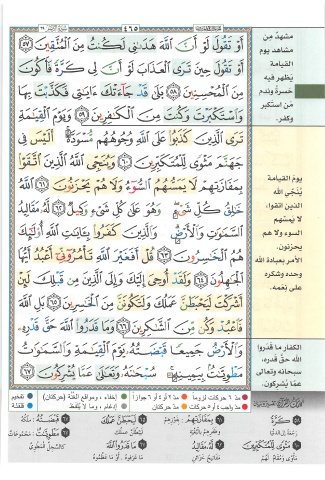 ٤٦٥
أَوْ تَقُولَ لَوْ أَنَّ ٱللَّهَ هَدَىٰنِى لَكُنتُ مِنَ ٱلْمُتَّقِينَ ٥٧
أَوْ تَقُولَ حِينَ تَرَى ٱلْعَذَابَ لَوْ أَنَّ لِى كَرَّةً فَأَكُونَ
مِنَ ٱلْمُحْسِنِينَ ٥٨ بَلَىٰ قَدْ جَآءَتْكَ ءَايَٰتِى فَكَذَّبْتَ بِهَا
وَٱسْتَكْبَرْتَ وَكُنتَ مِنَ ٱلْكَٰفِرِينَ ٥٩ وَيَوْمَ ٱلْقِيَٰمَةِ
تَرَى ٱلَّذِينَ كَذَبُوا۟ عَلَى ٱللَّهِ وُجُوهُهُم مُّسْوَدَّةٌ أَلَيْسَ فِى
جَهَنَّمَ مَثْوًى لِّلْمُتَكَبِّرِينَ ٦٠ وَيُنَجِّى ٱللَّهُ ٱلَّذِينَ ٱتَّقَوْا۟
بِمَفَازَتِهِمْ لَا يَمَسُّهُمُ ٱلسُّوٓءُ وَلَا هُمْ يَحْزَنُونَ ٦١ ٱللَّهُ
خَٰلِقُ كُلِّ شَىْءٍ وَهُوَ عَلَىٰ كُلِّ شَىْءٍ وَكِيلٌ ٦٢ لَّهُۥ مَقَالِيدُ
ٱلسَّمَٰوَٰتِ وَٱلْأَرْضِ وَٱلَّذِينَ كَفَرُوا۟ بِـَٔايَٰتِ ٱللَّهِ أُو۟لَٰٓئِكَ
هُمُ ٱلْخَٰسِرُونَ ٦٣ قُلْ أَفَغَيْرَ ٱللَّهِ تَأْمُرُوٓنِّىٓ أَعْبُدُ أَيُّهَا
ٱلْجَٰهِلُونَ ٦٤ وَلَقَدْ أُوحِىَ إِلَيْكَ وَإِلَى ٱلَّذِينَ مِن قَبْلِكَ لَئِنْ
أَشْرَكْتَ لَيَحْبَطَنَّ عَمَلُكَ وَلَتَكُونَنَّ مِنَ ٱلْخَٰسِرِينَ ٦٥ بَلِ ٱللَّهَ
فَٱعْبُدْ وَكُن مِّنَ ٱلشَّٰكِرِينَ ٦٦ وَمَا قَدَرُوا۟ ٱللَّهَ حَقَّ قَدْرِهِۦ
وَٱلْأَرْضُ جَمِيعًا قَبْضَتُهُۥ يَوْمَ ٱلْقِيَٰمَةِ وَٱلسَّمَٰوَٰتُ
مَطْوِيَّٰتٌۢ بِيَمِينِهِۦ سُبْحَٰنَهُۥ وَتَعَٰلَىٰ عَمَّا يُشْرِكُونَ ٦٧
مشهدٌ مِن
مشاهد يوم
القيامة
يَظهر فيه
حَسرةُ وندم
مَن استكبر
وكفر.
يومَ القيامة
يُنجّي الله
الذين اتقوا،
لا يَمسّهم
السوء ولا هم
يحزنون.
الأمر بعبادة الله
وحده وشكره
على نِعَمه.
الكفار ما قدَروا
اللهَ حقّ قدره،
سبحانه وتعالى
عمّا يُشركون.
مدّ ٦ حركات لزوماً
مدّ ٢ أو ٤ أو ٦ جوازاً
إخفاء، ومواقع الغُنّة (حركتان)
تفخيم
مدّ حركتان
إدغام، وما لا يُلفظ
قلقلة
كَرَّةً
بِمَفَازَتِهِمْ
لَيَحْبَطَنَّ عَمَلُكَ
قَبْضَتُهُ
مَثْوًى لِّلْمُتَكَبِّرِينَ
لَهُ مَقَالِيدُ
مَا قَدَرُوا اللَّهَ
مَطْوِيَّاتٌ